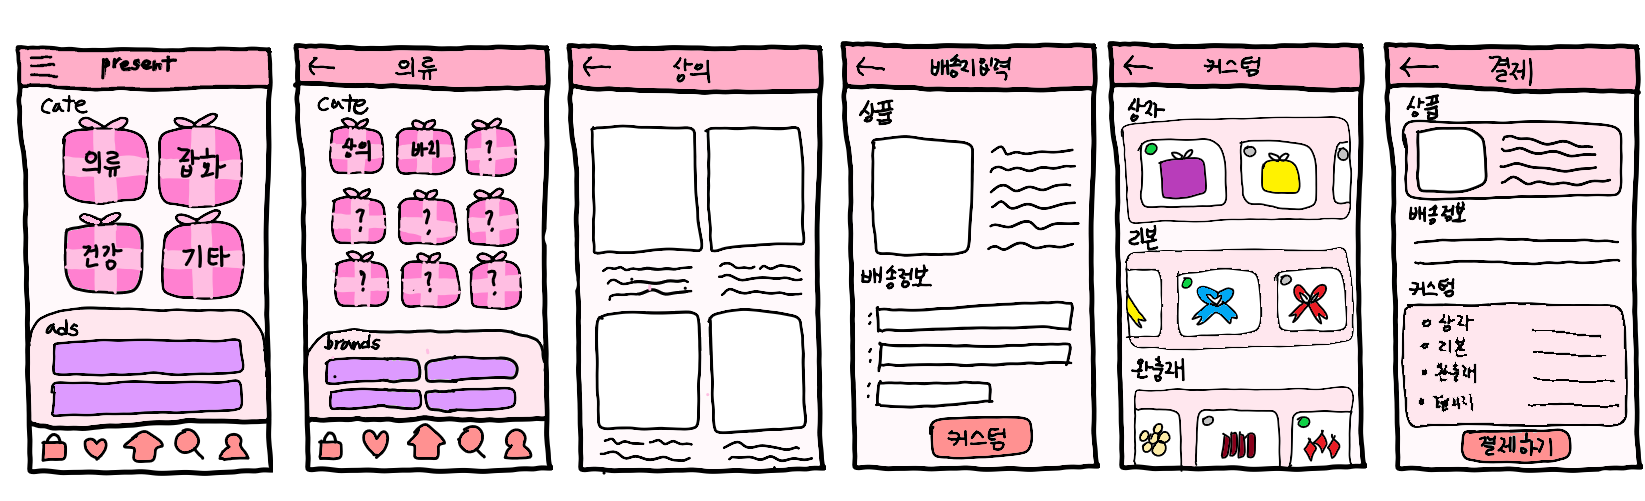 present
cate
의류
잡화
건강
기타
ads
의류
cate
상의
바지
?
?
?
?
?
?
?
brands
상의
배송지입력
상품
배송정보
:
:
:
커스텀
커스텀
상자
리본
완충재
결제
상품
배송정보
커스텀
• 상자
• 리본
• 완충재
결제하기